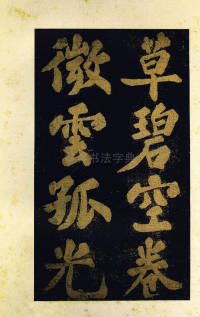 草碧空卷
微雲孤光
书法字典